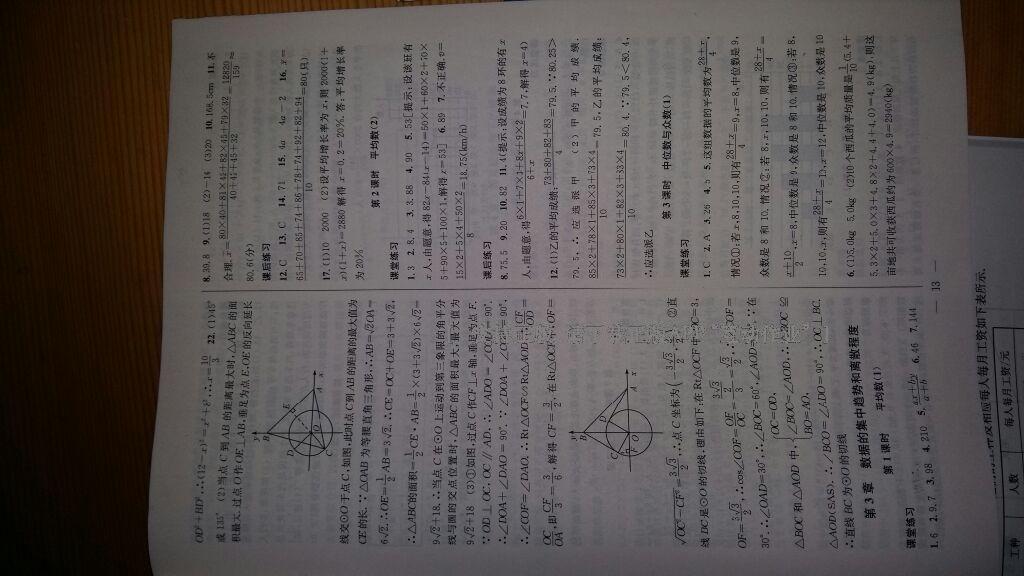 OD²+BD²,∴(12-x)²=x²+t²,∴x=10/3 22. (1)45°
或135° (2)当点C到AB的距离最大时,△ABC的面
积最大,过点O作OE⊥AB,垂足为点E,OE的反向延长
线交⊙O于点C,如图,此时点C到AB的距离的最大值为
CE的长.∵△OAB为等腰直角三角形,∴AB=√2OA=
6√2,∴OE=1/2AB=3√2,∴CE=OC+OE=3+3√2,
∴△ABC的面积=1/2CE·AB=1/2×(3+3√2)×6√2=
9√2+18.∴当点C在⊙O上运动到第三象限的角平分
线与圆的交点位置时,△ABC的面积最大,最大值为
9√2+18 (3)①如图,过点C作CF⊥x轴,垂足为点F,
∵OD⊥OC,OC∥AD,∴∠ADO=∠COD=90°,
∴∠DOA+∠DAO=90°.∵∠DOA+∠COF=90°,
∴∠COF=∠DAO,∴Rt△OCF∽Rt△AOD,∴CF/OD=
OC/OA,即CF/3=3/6,解得CF=3/2,在Rt△OCF中,OF=
√OC²-CF²=3√3/2,∴点C坐标为(-3√3/2,3/2) ②直
线BC是⊙O的切线.理由如下:在Rt△OCF中,OC=3,
OF=3√3/2,∴cos∠COF=OF/OC=
30°,∴∠OAD=30°,∴∠BOC=60°,∠AOD=60°.∵在
△BOC和△AOD中,{OC=OD,∠BOC=∠AOD,BO=AO,∴△BOC≌
△AOD(SAS),∴∠BCO=∠ADO=90°,∴OC⊥BC,
∴直线BC为⊙O的切线
第3章 数据的集中趋势和离散程度
第1课时 平均数(1)
课堂练习
1. 6 2. 9.7 3. 98 4. 210 5. 6. 46 7. 144
8. 30.8 9. (1)18 (2)-14 (3)20 10. 168.5cm 11. 不
合理,
80.6(分)
课后练习
12. C 13. C 14. 71 15. 4a 4a-2 16. x=
65+70+85+74+86+78+74+92+82+94/10=80(只)
17. (1)10 2000 (2)设平均增长率为x,则2000(1+
x)(1+x)=2880 解得x=0.2=20%,答:平均增长率
为20%
第2课时 平均数(2)
课堂练习
1. 3 2. 8.4 3. 88 4. 90 5. 53[提示:设该班有
x人,由题意,得82x-84(x-14)=50×1+60×2+70×
5+90×5+100×1,解得x=53] 6. 89 7. 不正确,v=
15×2+5×4+50×2/8=18.75(km/h)
课后练习
8. 75.5 9. 20 10. 82 11. 4[提示:设成绩为8环的有x
人,由题意,得6×1+7×1+8x+9×2/=7.7,解得x=4]
12. (1)乙的平均成绩:73+80+82+83/4=79.5,∵80.25>
79.5,∴应选派甲 (2)甲的平均成绩:
85×2+78×1+85×3+73×4/10=79.5,乙的平均成绩:
73×2+80×1+82×3+83×4/10=80.4,∵79.5<80.4,
∴应选派乙
第3课时 中位数与众数(1)
课堂练习
1. C 2. A 3. 26 4. 5. 这组数据的平均数为28+x/4,
情况①:若x,8,10,10,则有28+x/4=9,x=8,中位数是9,
众数是8和10. 情况②:若8,x,10,10,则有28+x/4=
x+10/2,x=8,中位数是9,众数是8和10. 情况③:若8,
10,10,x,则有28+x/4=10,x=12,中位数是10,众数是10
6. (1)5.0kg 5.0kg (2)10个西瓜的平均质量是1/10(5.4+
5.3×2+5.0×3+4.8×2+4.4+4.0)=4.9(kg),则这
亩地共可收获西瓜约为600×4.9=2940(kg)
— 13 —
相应每人每月工资如下表所示.
工种 人数 每人每月工资/元